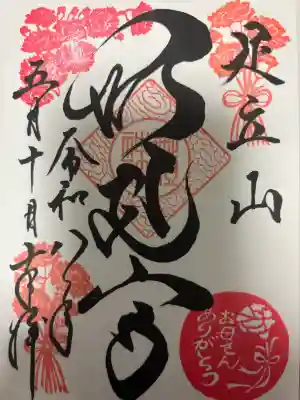 足立山
妙見宮
令和八年
五月十日 奉拝
お母さん
ありがとう